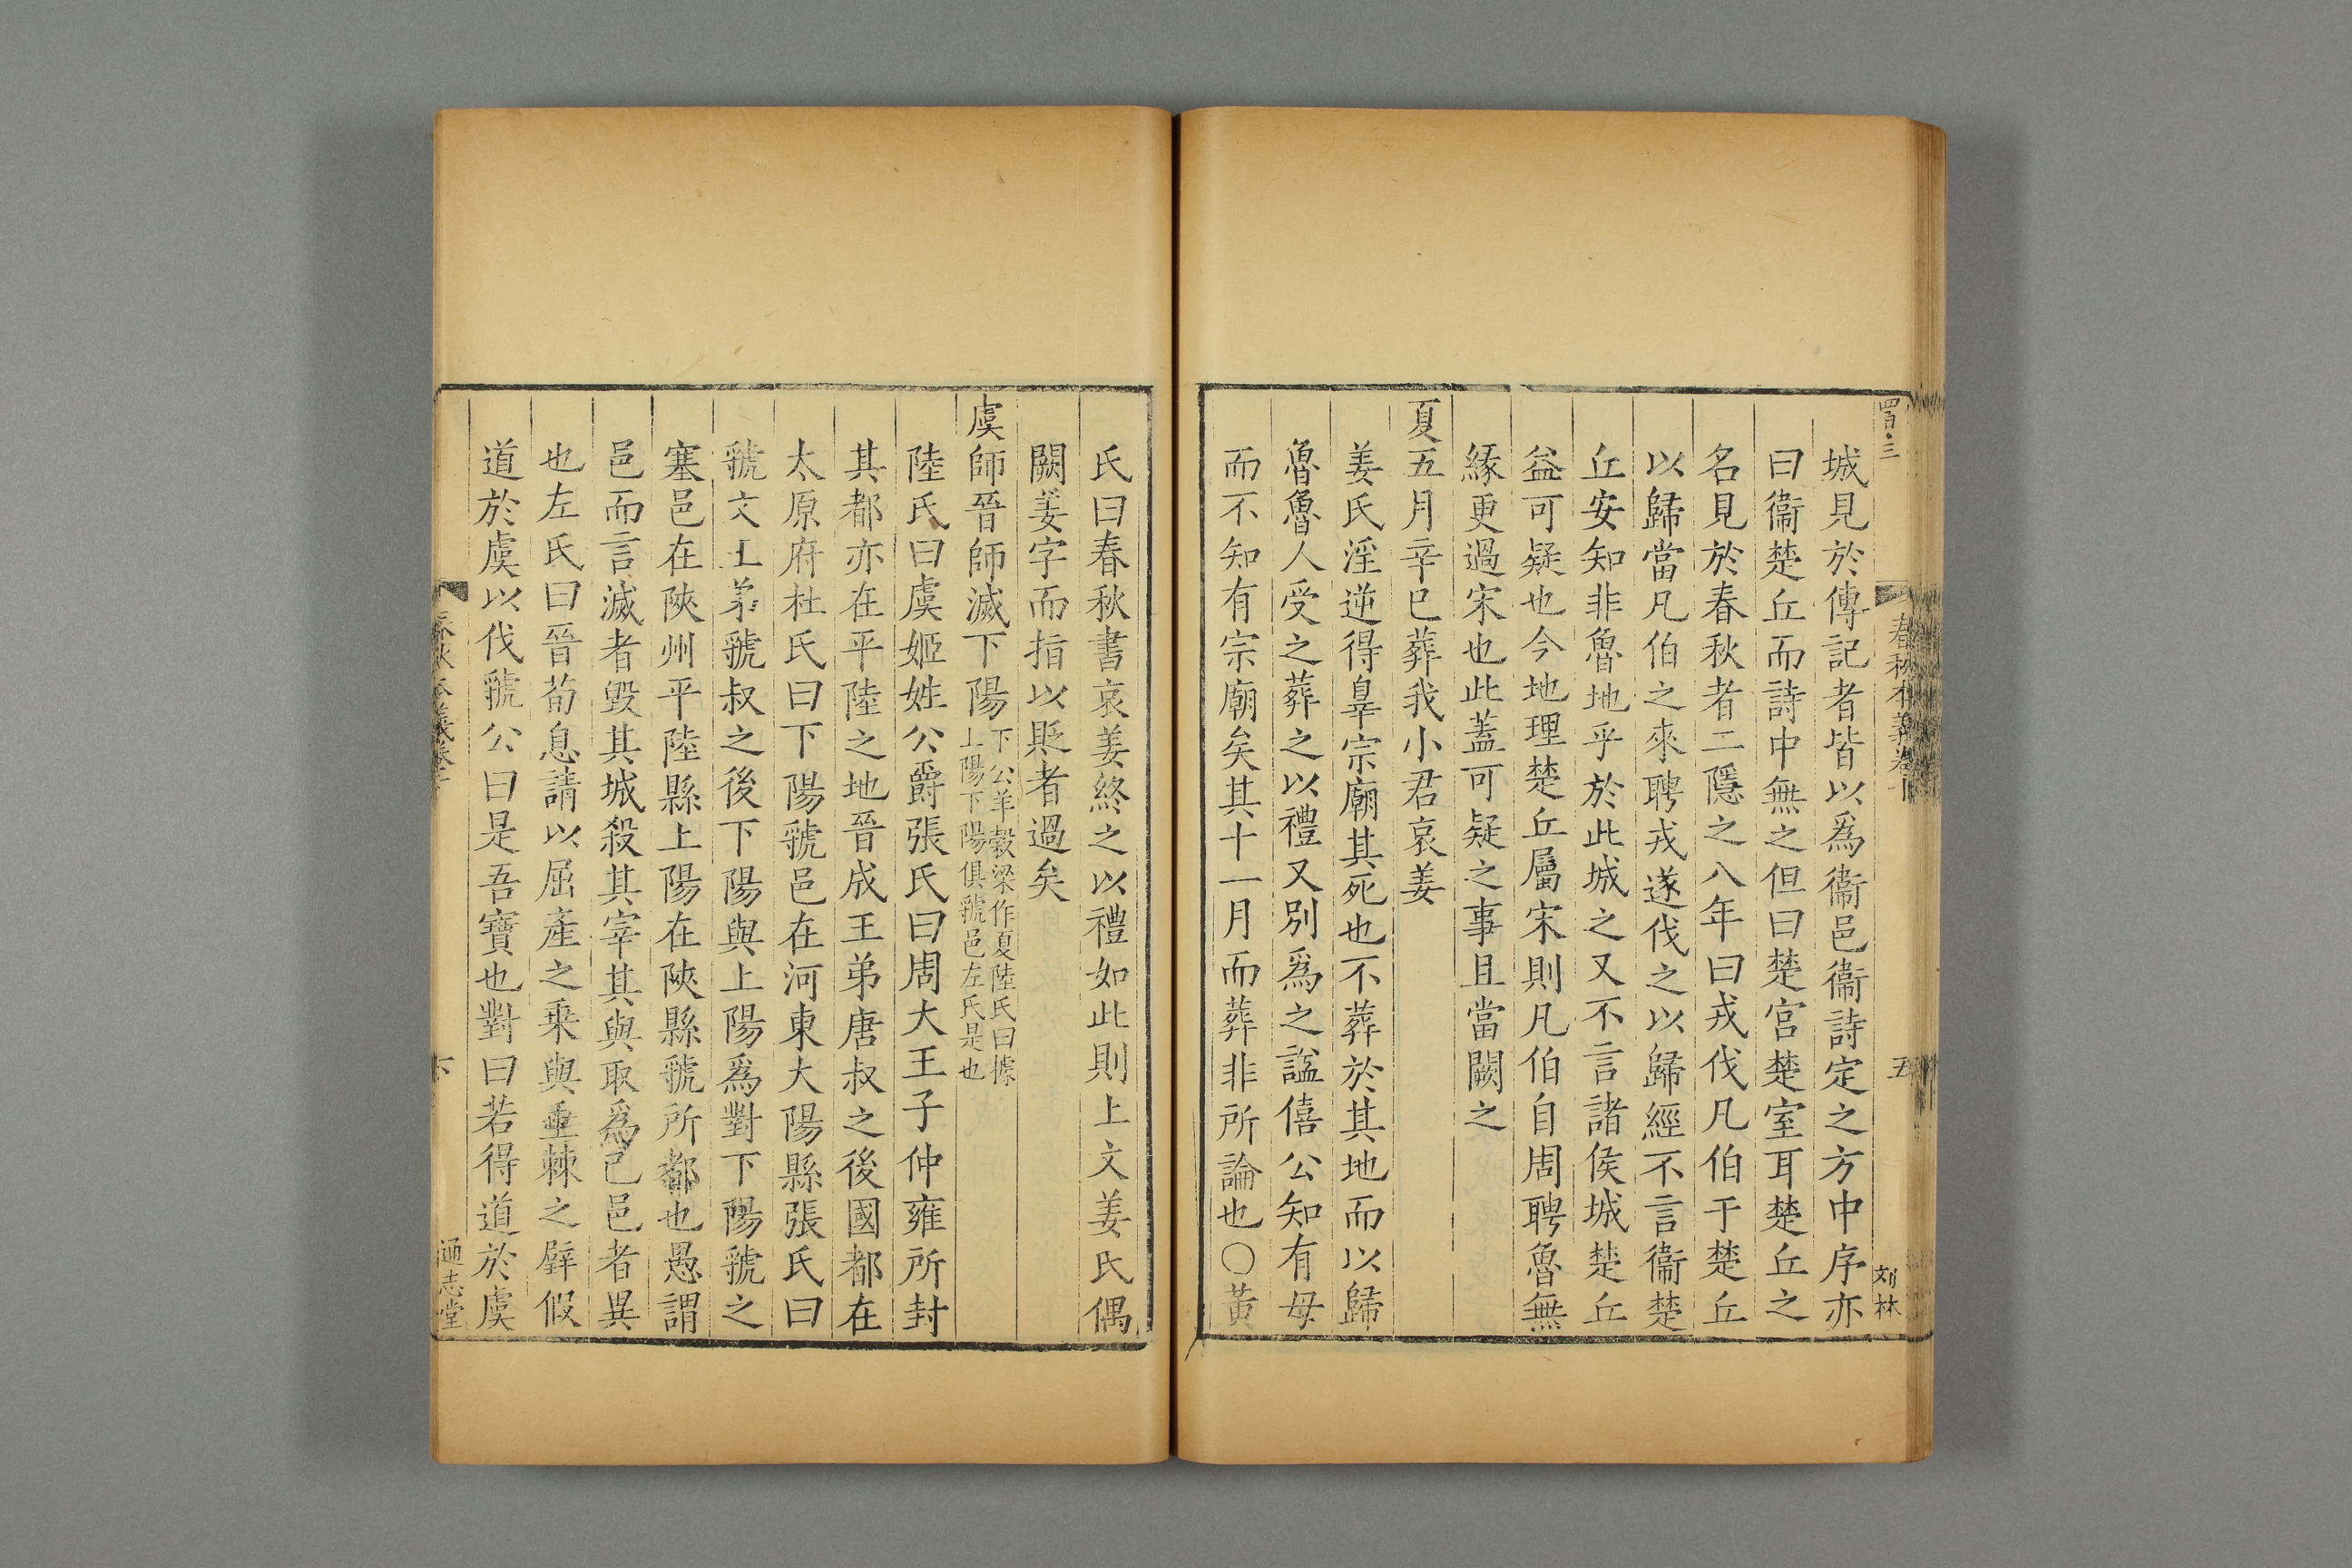 城見於傳記者皆以爲衞邑衞詩定之方中序亦
曰衞楚丘而詩中無之但曰楚宮楚室耳楚丘之
名見於春秋者二隱之八年曰戎伐凡伯于楚丘
以歸當凡伯之來聘戎遂伐之以歸經不言衞楚
丘安知非魯地乎於此城之又不言諸侯城楚丘
益可疑也今地理楚丘屬宋則凡伯自周聘魯無
緣更過宋也此蓋可疑之事且當闕之
夏五月辛巳葬我小君哀姜
姜氏淫逆得辠宗廟其死也不葬於其地而以歸
魯魯人受之葬之以禮又別爲之諡僖公知有母
而不知有宗廟矣其十一月而葬非所論也○黃
氏曰春秋書哀姜終之以禮如此則上文姜氏偶
闕姜字而指以貶者過矣
虞師晉師滅下陽下公羊穀梁作夏陸氏曰據
上陽下陽俱虢邑左氏是也
陸氏曰虞姬姓公爵張氏曰周大王子仲雍所封
其都亦在平陸之地晉成王弟唐叔之後國都在
太原府杜氏曰下陽虢邑在河東大陽縣張氏曰
虢文王弟虢叔之後下陽與上陽爲對下陽虢之
塞邑在陝州平陸縣上陽在陝縣虢所都也愚謂
邑而言滅者毀其城殺其宰其與取爲己邑者異
也左氏曰晉荀息請以屈產之乗與垂棘之璧假
道於虞以伐虢公曰是吾寶也對曰若得道於虞
春秋本義卷十
五
刘林
通志堂